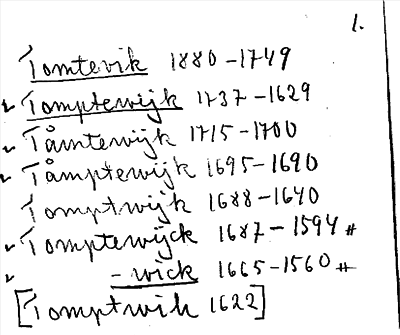 1.
Tomtevik 1880-1749
Tomptewijk 1737-1629
Tåmtewijk 1715-1700
Tåmptewijk 1695-1690
Tomptwijk 1688-1640
Tomptewijck 1687-1594 #
-wick 1665-1560 #
[Tomptwik 1622]